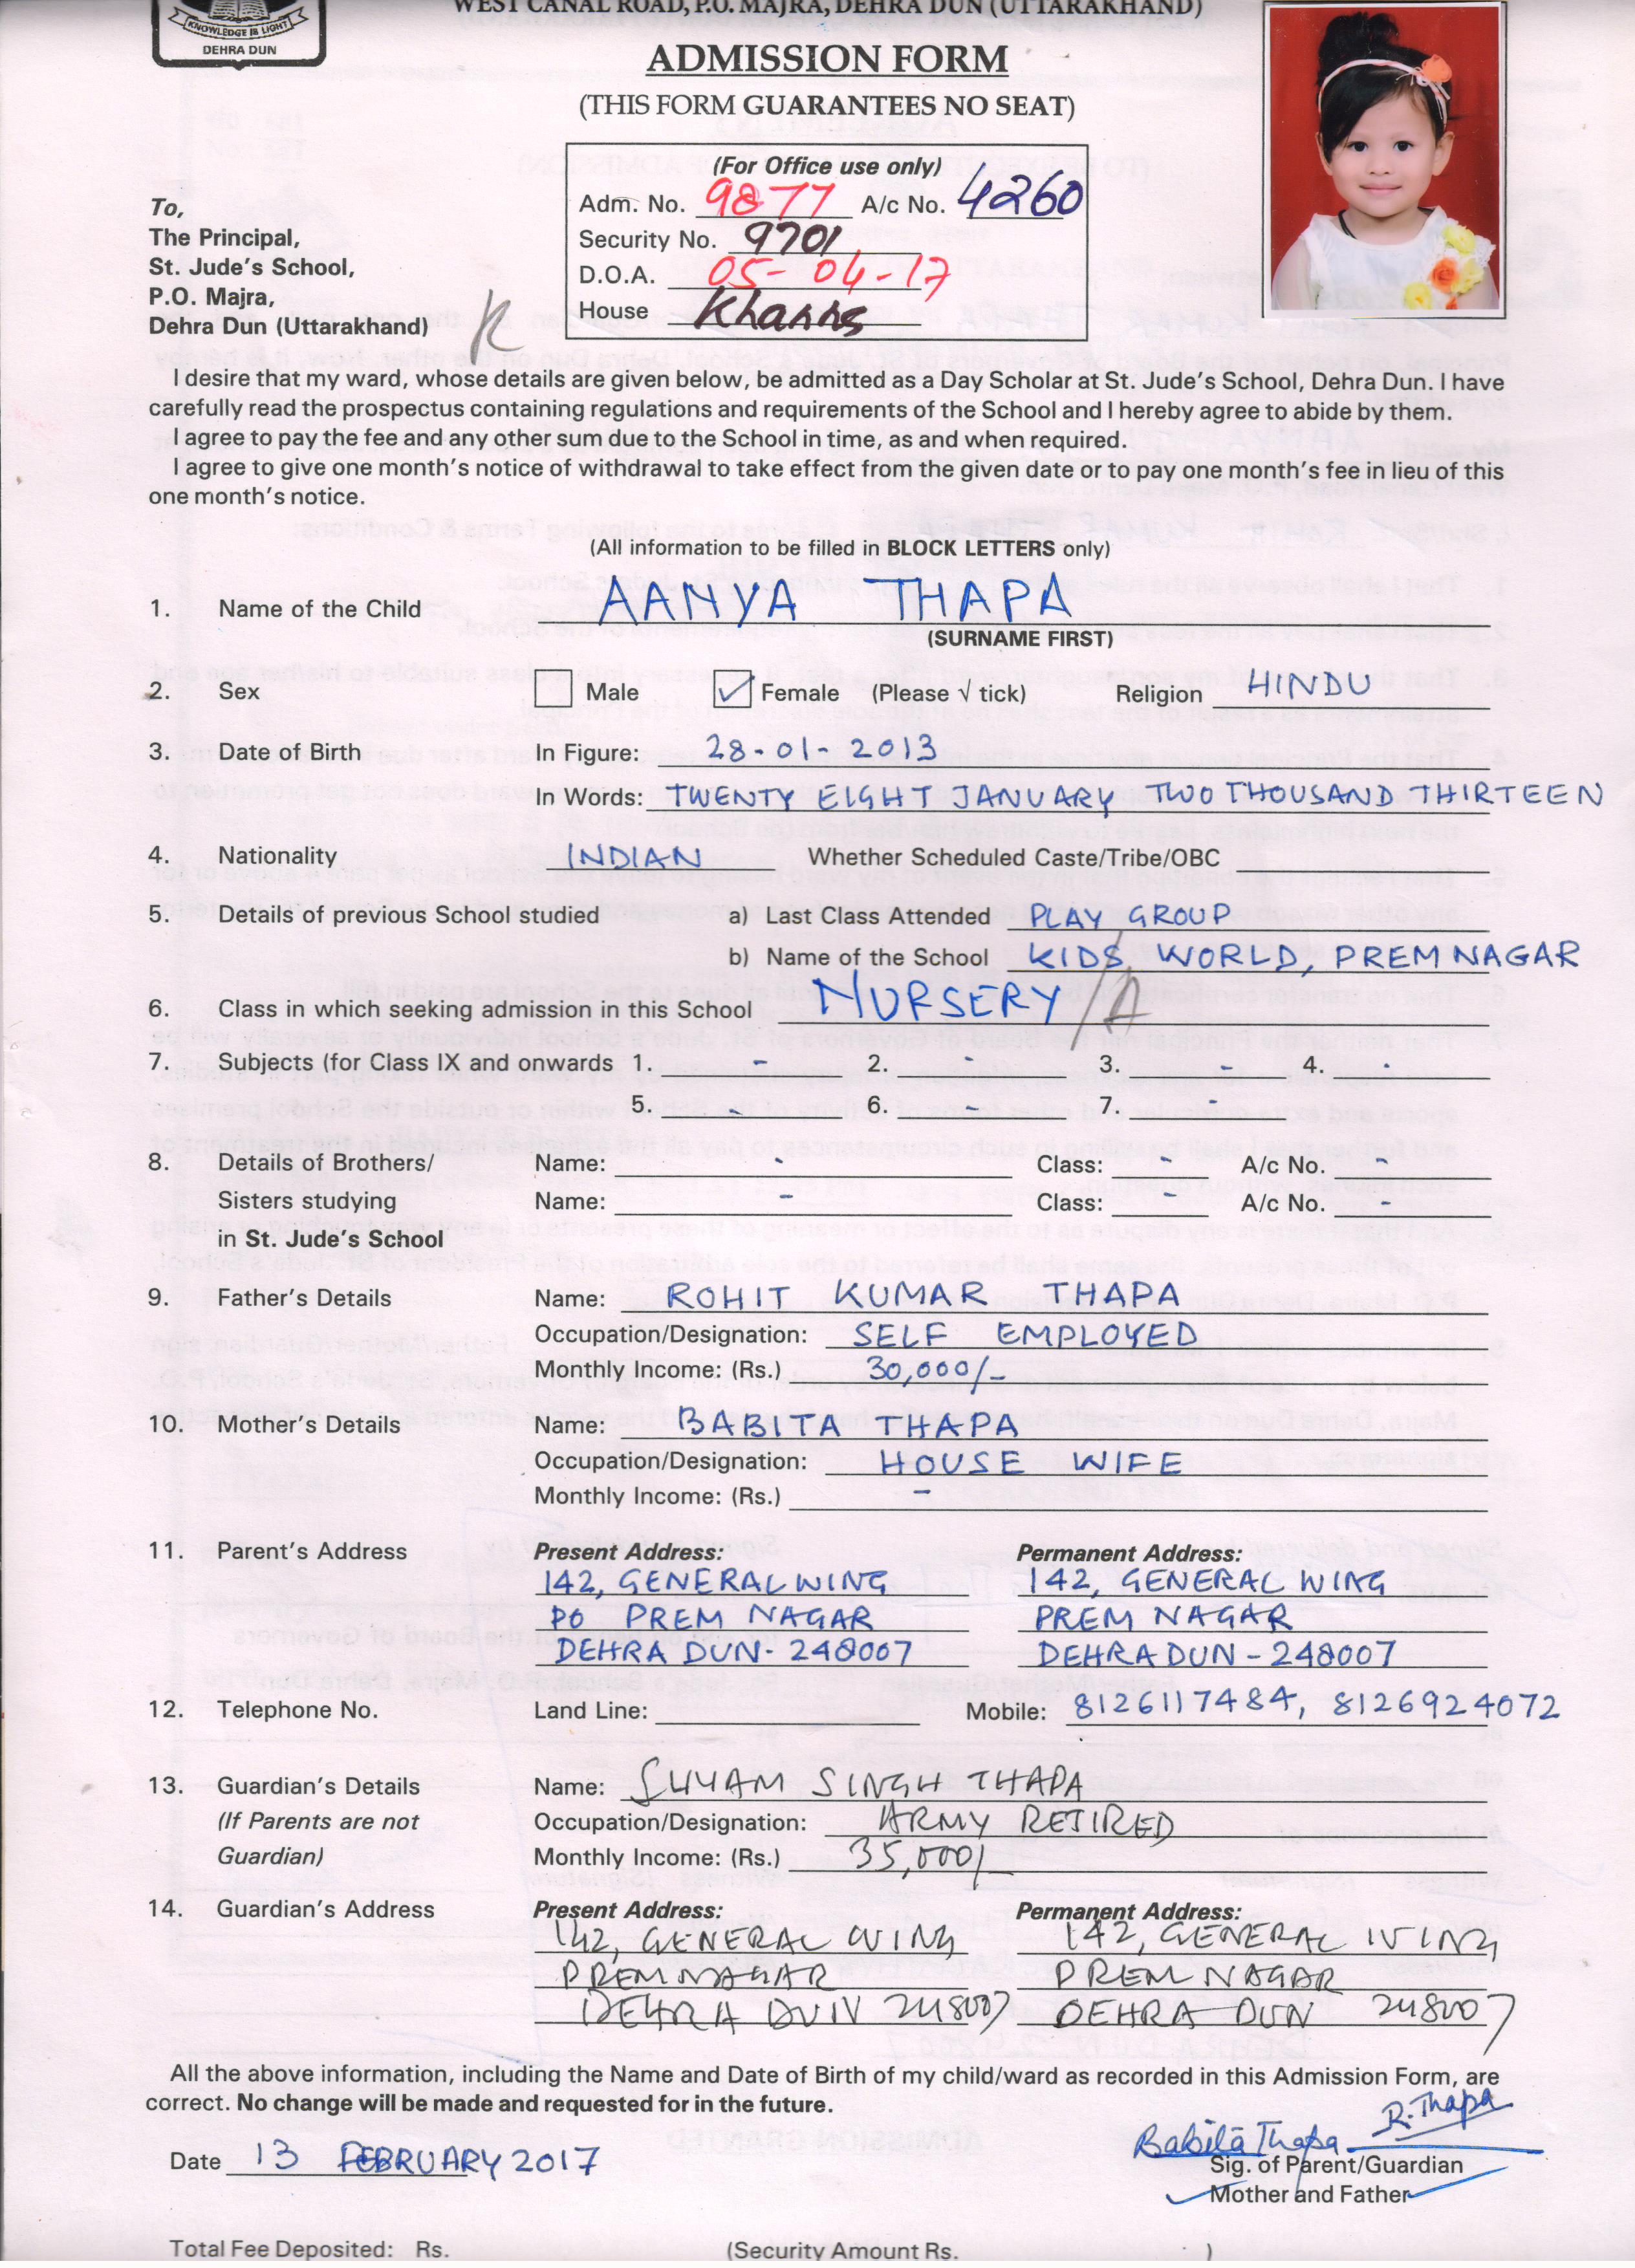 WEST CANAL ROAD, P.O. MAJRA, DEHRA DUN (UTTARAKHAND)
KNOWLEDGE IS LIGHT
DEHRA DUN
ADMISSION FORM
(THIS FORM GUARANTEES NO SEAT)
(For Office use only)
Adm. No. 9877 A/c No. 4260
Security No. 9701
D.O.A. 05-04-17
House Khanna
To,
The Principal,
St. Jude's School,
P.O. Majra,
Dehra Dun (Uttarakhand)
K
I desire that my ward, whose details are given below, be admitted as a Day Scholar at St. Jude's School, Dehra Dun. I have
carefully read the prospectus containing regulations and requirements of the School and I hereby agree to abide by them.
I agree to pay the fee and any other sum due to the School in time, as and when required.
I agree to give one month's notice of withdrawal to take effect from the given date or to pay one month's fee in lieu of this
one month's notice.
(All information to be filled in BLOCK LETTERS only)
1. Name of the Child AANYA THAPA
(SURNAME FIRST)
2. Sex Male ✓ Female (Please √ tick) Religion HINDU
3. Date of Birth In Figure: 28-01-2013
In Words: TWENTY EIGHT JANUARY TWO THOUSAND THIRTEEN
4. Nationality INDIAN Whether Scheduled Caste/Tribe/OBC
5. Details of previous School studied a) Last Class Attended PLAY GROUP
b) Name of the School KIDS WORLD, PREM NAGAR
6. Class in which seeking admission in this School NURSERY /A
7. Subjects (for Class IX and onwards 1. - 2. - 3. - 4. -
5. - 6. - 7. -
8. Details of Brothers/ Name: - Class: - A/c No. -
Sisters studying Name: - Class: - A/c No. -
in St. Jude's School
9. Father's Details Name: ROHIT KUMAR THAPA
Occupation/Designation: SELF EMPLOYED
Monthly Income: (Rs.) 30,000/-
10. Mother's Details Name: BABITA THAPA
Occupation/Designation: HOUSE WIFE
Monthly Income: (Rs.) -
11. Parent's Address Present Address: Permanent Address:
142, GENERAL WING 142, GENERAL WING
PO PREM NAGAR PREM NAGAR
DEHRA DUN- 248007 DEHRA DUN - 248007
12. Telephone No. Land Line: Mobile: 8126117484, 8126924072
13. Guardian's Details Name: SHYAM SINGH THAPA
(If Parents are not Occupation/Designation: ARMY RETIRED
Guardian) Monthly Income: (Rs.) 35,000/
14. Guardian's Address Present Address: Permanent Address:
142, GENERAL WING 142, GENERAL WING
PREM NAGAR PREM NAGAR
DEHRA DUN 248007 DEHRA DUN 248007
All the above information, including the Name and Date of Birth of my child/ward as recorded in this Admission Form, are
correct. No change will be made and requested for in the future.
R. Thapa
Babita Thapa
Date 13 FEBRUARY 2017
Sig. of Parent/Guardian
Mother and Father
Total Fee Deposited: Rs. (Security Amount Rs. )